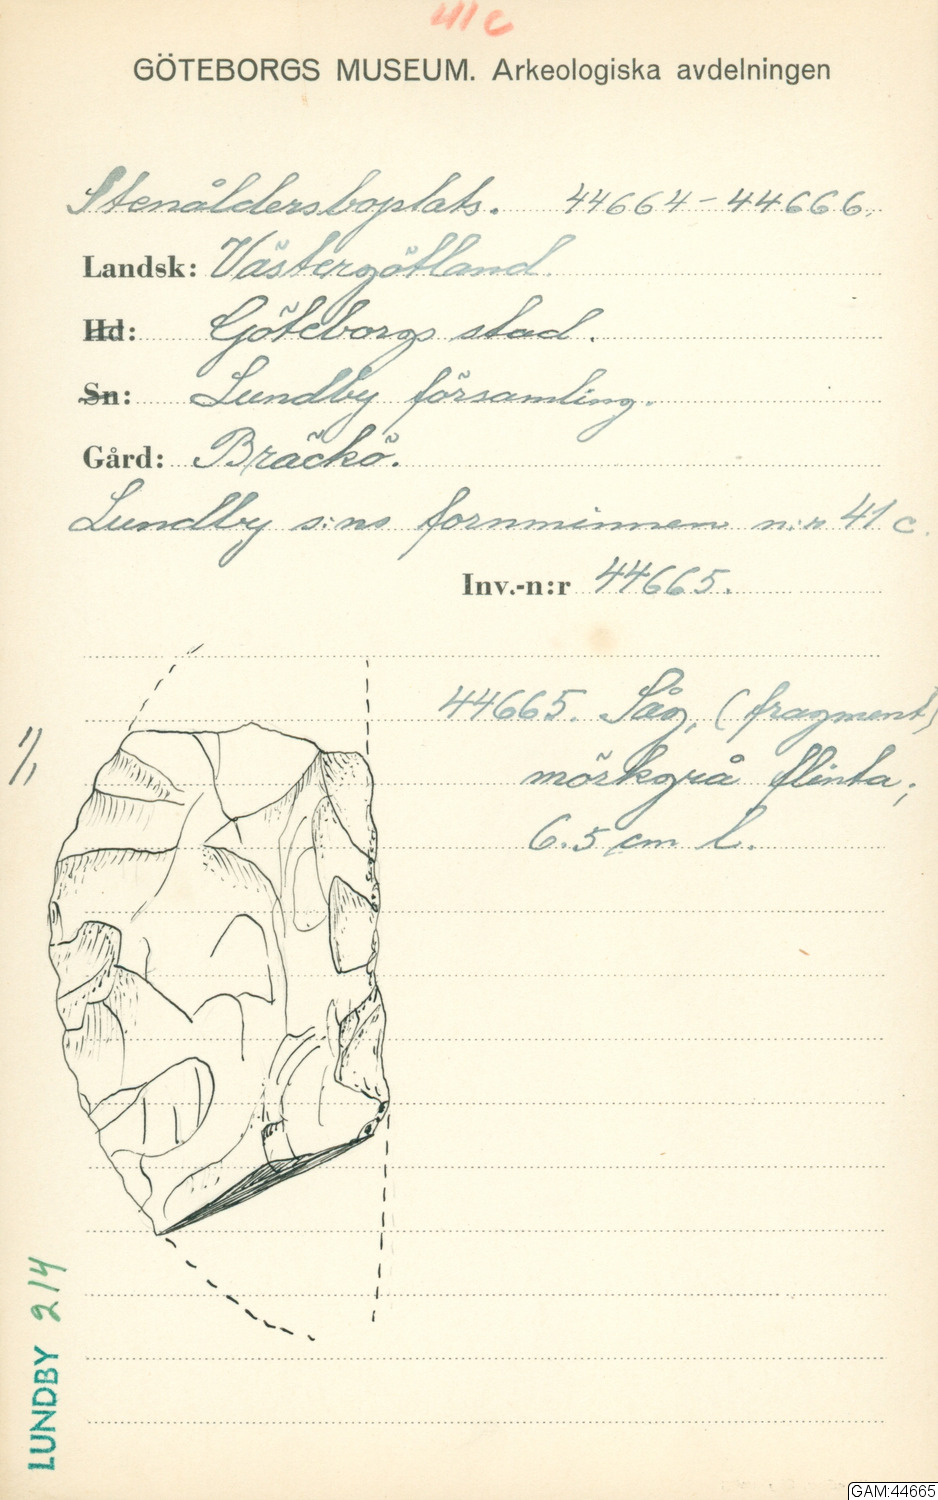 41 c
GÖTEBORGS MUSEUM. Arkeologiska avdelningen
Stenåldersboplats. 44664-44666.
Landsk: Västergötland.
Hd: Göteborgs stad.
Sn: Lundby församling.
Gård: Bräckö.
Lundby s:ns fornminnen n:r 41 c.
Inv.-n:r 44665.
44665. Såg, (fragment)
mörkgrå flinta;
6.5 cm l.
1/1
LUNDBY 214
GAM:44665